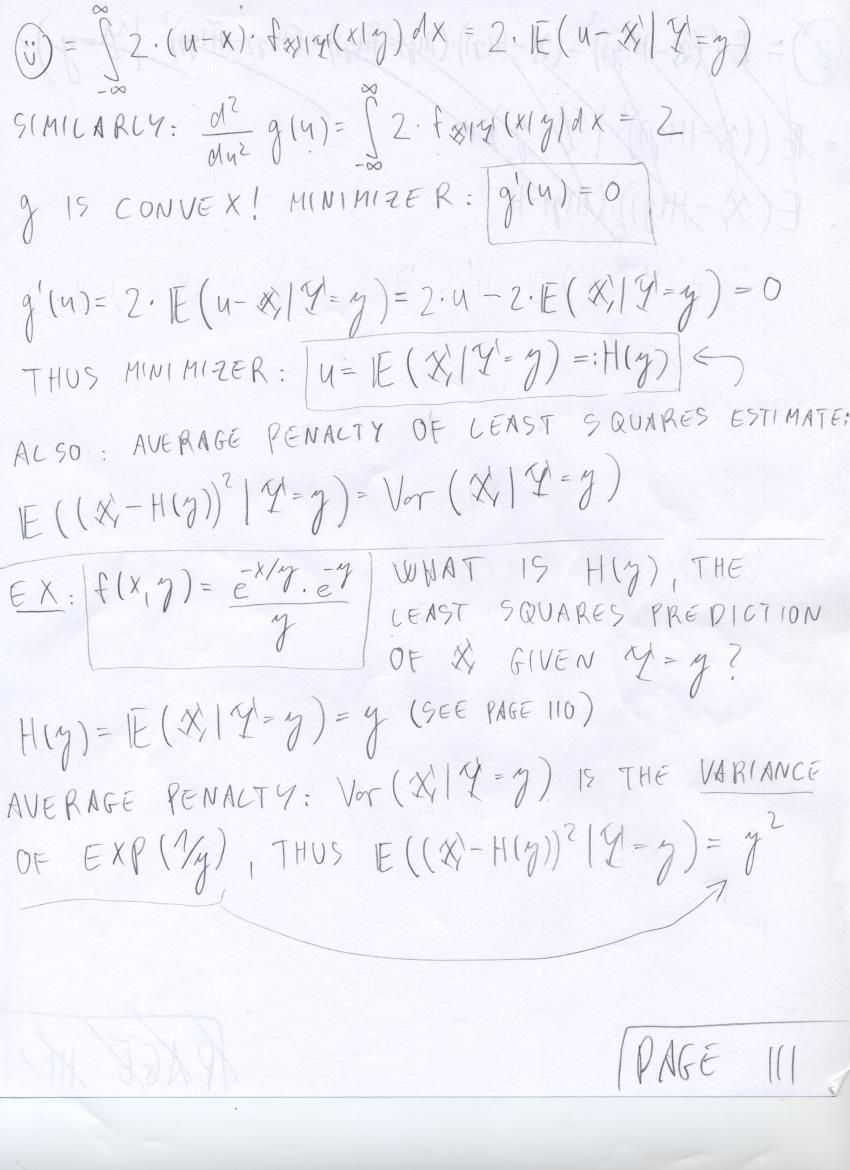 ☺ = ∫_{-∞}^{∞} 2·(u-x)·f_{X|Y}(x|y) dx = 2·E(u-X | Y=y)
SIMILARLY: d²/du² g(u) = ∫_{-∞}^{∞} 2·f_{X|Y}(x|y) dx = 2
g IS CONVEX! MINIMIZER: g'(u) = 0
g'(u) = 2·E(u-X | Y=y) = 2·u - 2·E(X | Y=y) = 0
THUS MINIMIZER: u = E(X | Y=y) =: H(y)
ALSO: AVERAGE PENALTY OF LEAST SQUARES ESTIMATE:
E((X-H(y))² | Y=y) = Var(X | Y=y)
EX: f(x,y) = e^{-x/y}·e^{-y} / y
WHAT IS H(y), THE
LEAST SQUARES PREDICTION
OF X GIVEN Y=y?
H(y) = E(X | Y=y) = y (SEE PAGE 110)
AVERAGE PENALTY: Var(X | Y=y) IS THE VARIANCE
OF EXP(1/y), THUS E((X-H(y))² | Y=y) = y²
PAGE 111